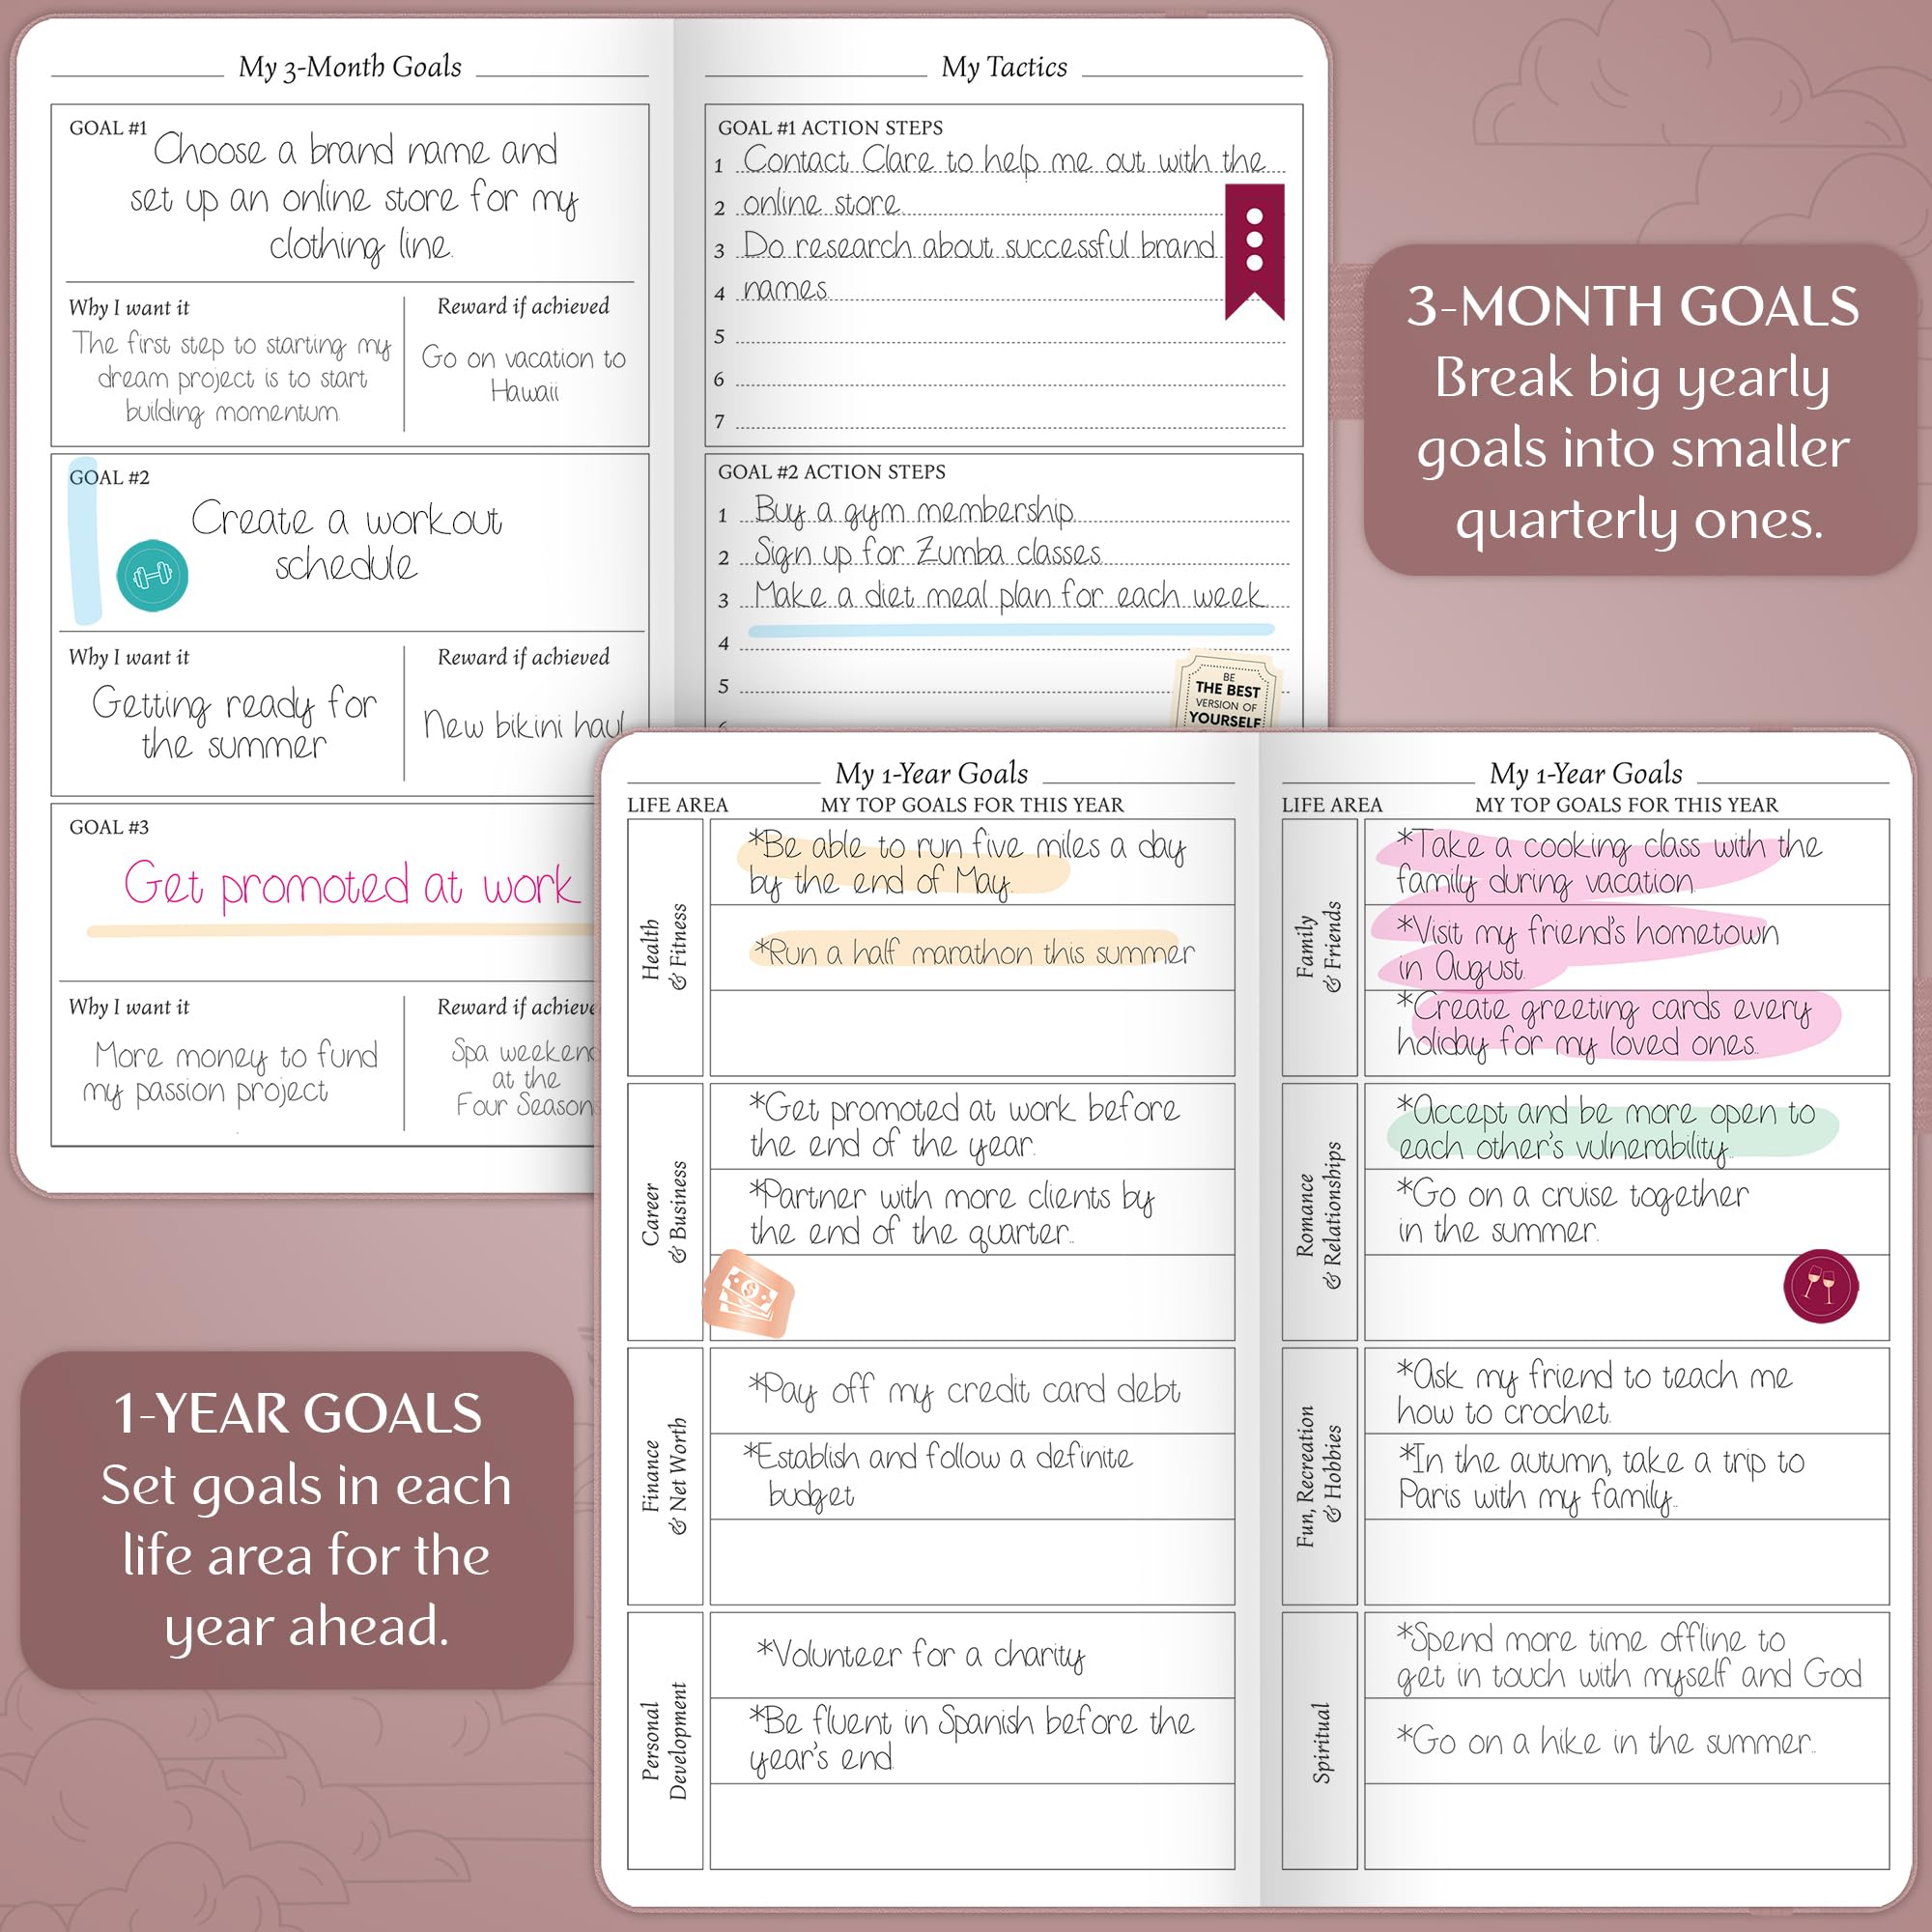 My 3-Month Goals
GOAL #1
Choose a brand name and
set up an online store for my
clothing line.
Why I want it
The first step to starting my
dream project is to start
building momentum.
Reward if achieved
Go on vacation to
Hawaii
GOAL #2
Create a workout
schedule
Why I want it
Getting ready for
the summer
Reward if achieved
New bikini haul
GOAL #3
Get promoted at work
Why I want it
More money to fund
my passion project
Reward if achieve
Spa weekend
at the
Four Season
My Tactics
GOAL #1 ACTION STEPS
1 Contact Clare to help me out with the
2 online store.
3 Do research about successful brand
4 names.
5
6
7
GOAL #2 ACTION STEPS
1 Buy a gym membership.
2 Sign up for Zumba classes.
3 Make a diet meal plan for each week.
4
5
BE
THE BEST
VERSION OF
YOURSELF
3-MONTH GOALS
Break big yearly
goals into smaller
quarterly ones.
My 1-Year Goals
LIFE AREA MY TOP GOALS FOR THIS YEAR
Health
& Fitness
*Be able to run five miles a day
by the end of May.
*Run a half marathon this summer
Career
& Business
*Get promoted at work before
the end of the year.
*Partner with more clients by
the end of the quarter..
Finance
& Net Worth
*Pay off my credit card debt
*Establish and follow a definite
budget
Personal
Development
*Volunteer for a charity
*Be fluent in Spanish before the
year's end.
My 1-Year Goals
LIFE AREA MY TOP GOALS FOR THIS YEAR
Family
& Friends
*Take a cooking class with the
family during vacation.
*Visit my friend's hometown
in August.
*Create greeting cards every
holiday for my loved ones..
Romance
& Relationships
*Accept and be more open to
each other's vulnerability..
*Go on a cruise together
in the summer.
Fun, Recreation
& Hobbies
*Ask my friend to teach me
how to crochet.
*In the autumn, take a trip to
Paris with my family..
Spiritual
*Spend more time offline to
get in touch with myself and God
*Go on a hike in the summer..
1-YEAR GOALS
Set goals in each
life area for the
year ahead.